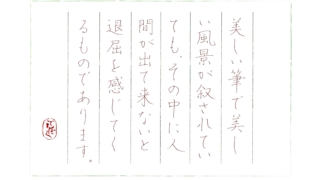 美しい筆で美し
い風景が叙されてい
ても、その中に人
間が出て来ないと
退屈を感じてく
るものであります。